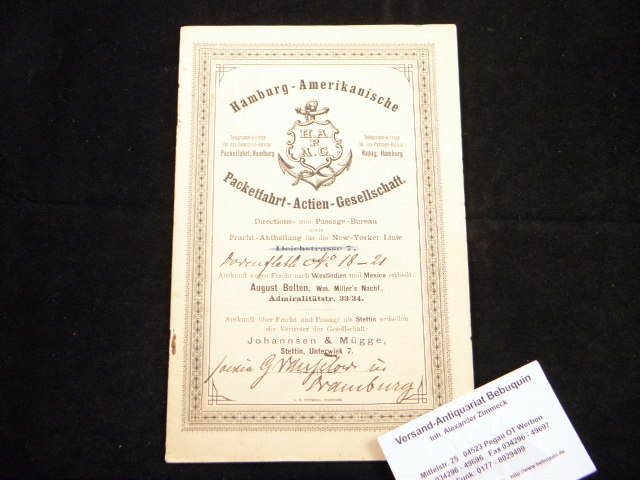 Hamburg-Amerikanische
H.A.
P.
A.G.
Telegramm-Adresse
für das Directions-Bureau:
Packetfahrt, Hamburg
Telegramm-Adresse
für das Passage-Bureau:
Hapag, Hamburg
Packetfahrt-Actien-Gesellschaft.
Directions- und Passage-Bureau
sowie
Fracht-Abtheilung für die New-Yorker Linie
Deichstrasse 7.
Dovenfleth No 18-21
Auskunft wegen Fracht nach Westindien und Mexico ertheilt:
August Bolten, Wm. Miller's Nachf.,
Admiralitätstr. 33/34.
Auskunft über Fracht und Passage ab Stettin ertheilen
die Vertreter der Gesellschaft:
Johannsen & Mügge,
Stettin, Unterwiek 7.
sowie G in
Dramburg
Versand-Antiquariat Bebuquin
Inh. Alexander Zimmeck
Mittelstr. 25 04523 Pegau OT Werben
034296 - 49696 Fax 034296 - 49697
Funk: 0177 - 6029499
http://www.bebuquin.de